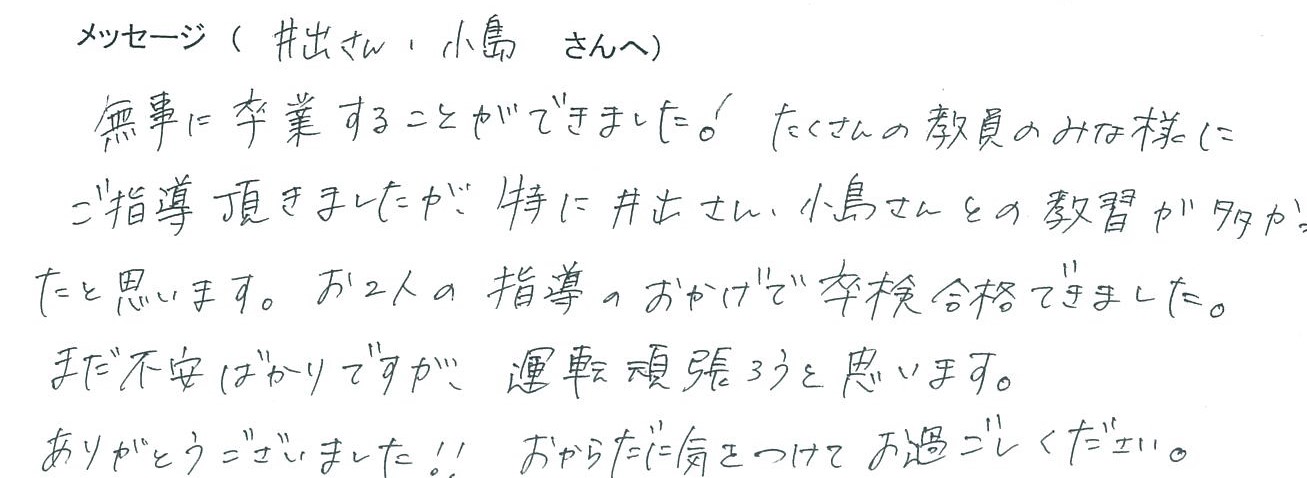 メッセージ( 井出さん、小島 さんへ)
無事に卒業することができました! たくさんの教員のみな様に
ご指導頂きましたが、特に井出さん、小島さんとの教習が多かっ
たと思います。お2人の指導のおかげで卒検合格できました。
まだ不安ばかりですが、運転頑張ろうと思います。
ありがとうございました!! おからだに気をつけてお過ごしください。